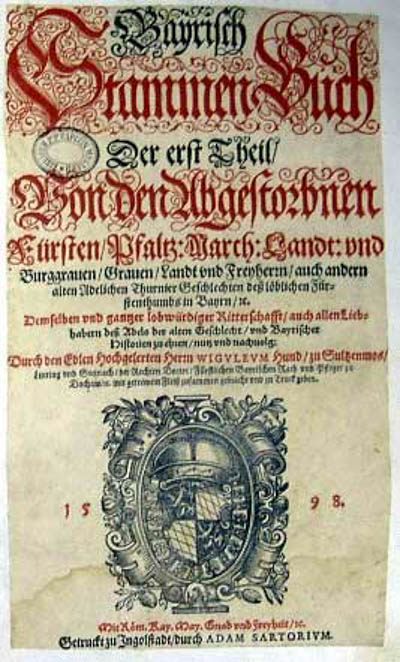 Bayrisch
Stammen Buch
Der erst Theil/
Von den Abgestorbnen
Fürsten/ Pfaltz: March: Landt: vnd
Burggrauen/ Grauen/ Landt vnd Freyherrn/ auch andern
alten Adelichen Thurnier Geschlechten deß löblichen Für-
stenthumbs in Bayrn/ ꝛc.
Demselben vnd gantzer lobwürdiger Ritterschafft/ auch allen Lieb-
habern deß Adels der alten Geschlecht/ vnd Bayrischer
Historien zu ehren/ nutz vnd nachuolg:
Durch den Edlen Hochgelerten Herrn WIGVLEVM Hund/ zu Sultzenmos/
Lenting vnd Steinach/ der Rechten Doctor/ Fürstlichen Bayrischen Rath vnd Pfleger zu
Dachaw/ꝛc. mit getrewem Fleiß zusammen gebracht vnd in Truck geben.
15 98.
Mit Röm. Kay. May. Gnad vnd Freyheit/ꝛc.
Getruckt zu Ingolstadt/ durch ADAM SARTORIVM.